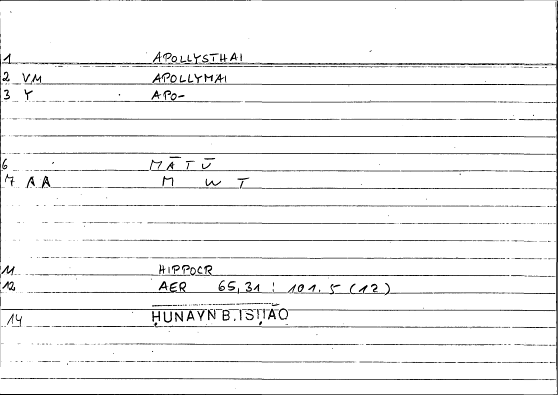 1 APOLLYSTHAI
2 VM APOLLYMAI
3 Y APO-
6 MĀTŪ
7 AA M W T
11 HIPPOCR
12 AER 65,31 : 101.5 (12)
14 ḤUNAYN B. ISḤAQ